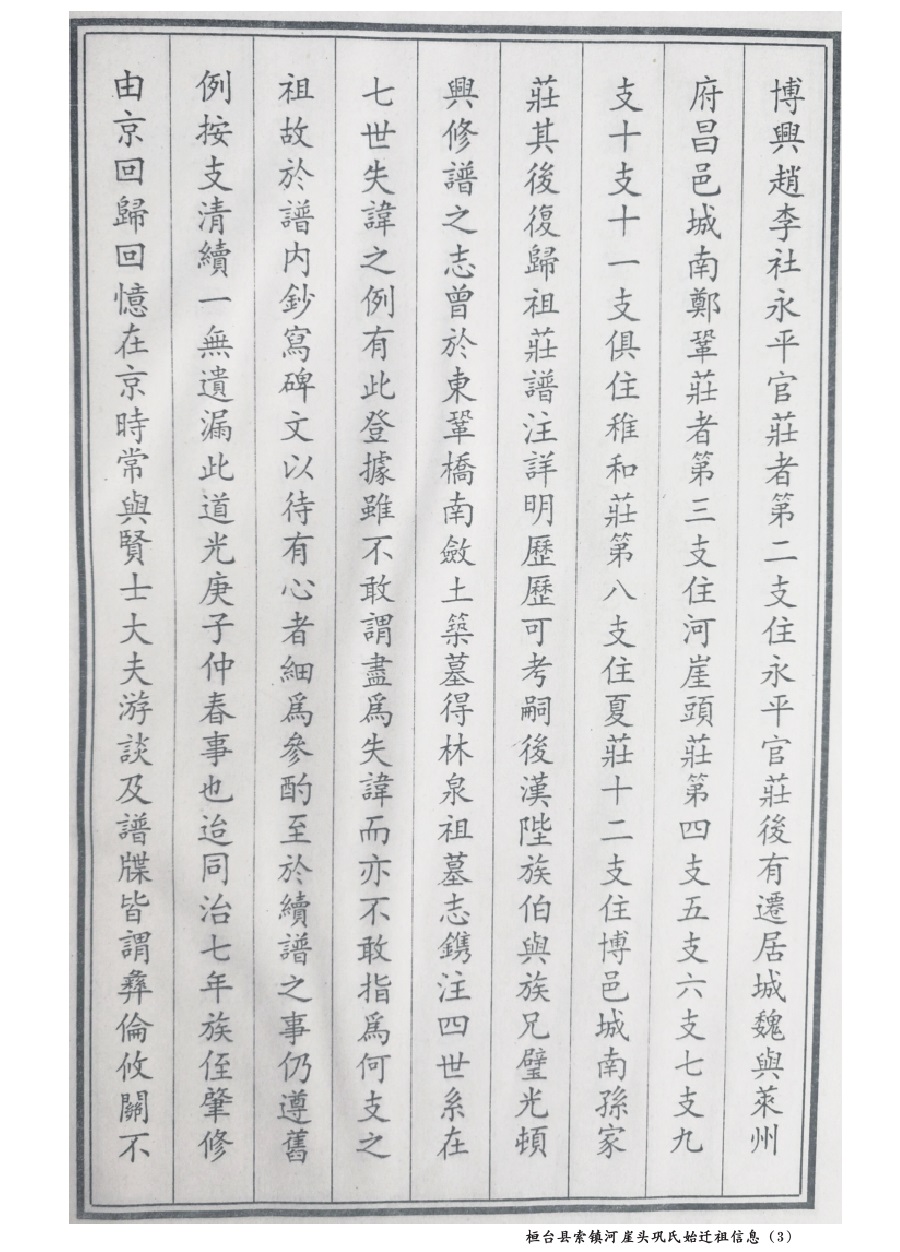 博興趙李社永平官莊者第二支住永平官莊後有遷居城魏與萊州
府昌邑城南鄭鞏莊者第三支住河崖頭莊第四支五支六支七支九
支十支十一支俱住稚和莊第八支住夏莊十二支住博邑城南孫家
莊其後復歸祖莊譜注詳明歷歷可考嗣後漢陛族伯與族兄璧光頓
興修譜之志曾於東鞏橋南斂土築墓得林泉祖墓志鐫注四世系在
七世失諱之例有此登據雖不敢謂盡爲失諱而亦不敢指爲何支之
祖故於譜内鈔寫碑文以待有心者細爲參酌至於續譜之事仍遵舊
例按支清續一無遺漏此道光庚子仲春事也迨同治七年族侄肇修
由京回歸回憶在京時常與賢士大夫游談及譜牒皆謂彝倫攸關不
桓台县索镇河崖头巩氏始迁祖信息（3）